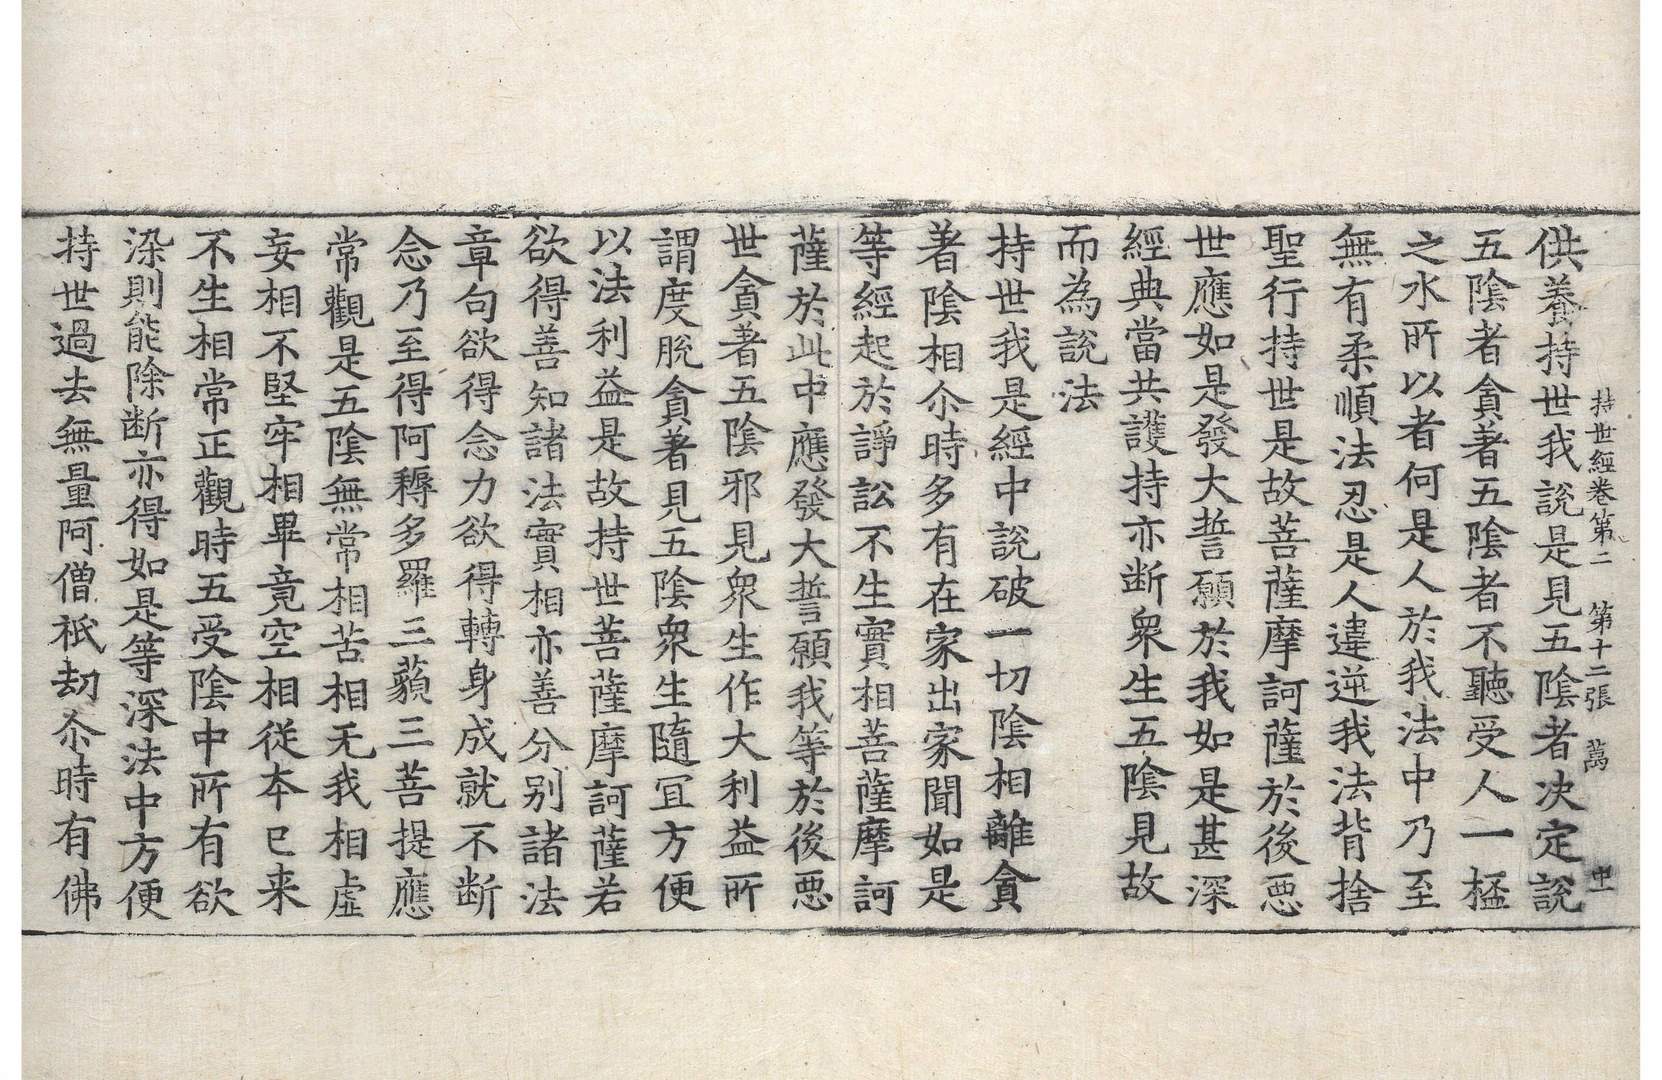 持世經卷第二　第十二張　萬
供養持世我說是見五陰者決定說
五陰者貪著五陰者不聽受人一㮇
之水所以者何是人於我法中乃至
無有柔順法忍是人違逆我法背捨
聖行持世是故菩薩摩訶薩於後惡
世應如是發大誓願於我如是甚深
經典當共護持亦断衆生五陰見故
而為說法
持世我是經中說破一切陰相離貪
著陰相尒時多有在家出家聞如是
等經起於諍訟不生實相菩薩摩訶
薩於此中應發大誓願我等於後惡
世貪著五陰邪見衆生作大利益所
謂度脫貪著見五陰衆生隨冝方便
以法利益是故持世菩薩摩訶薩若
欲得善知諸法實相亦善分別諸法
章句欲得念力欲得轉身成就不断
念乃至得阿耨多羅三藐三菩提應
常觀是五陰無常相苦相无我相虛
妄相不堅牢相畢竟空相從本已来
不生相常正觀時五受陰中所有欲
染則能除断亦得如是等深法中方便
持世過去無量阿僧祇劫尒時有佛